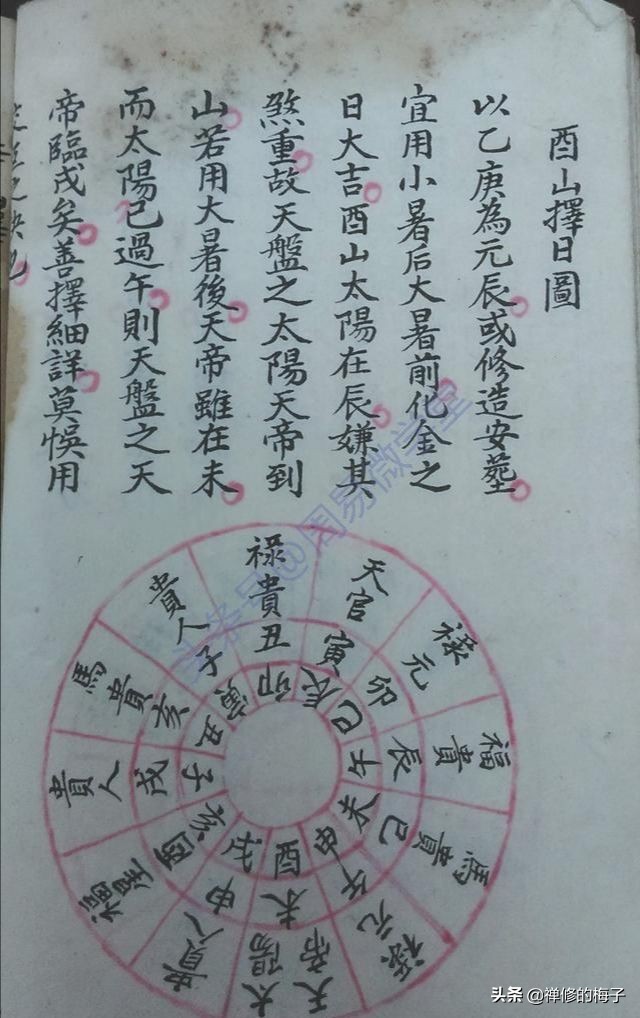 酉山擇日圖
以乙庚為元辰。或修造安塟。
宜用小暑后大暑前。化金之
日大吉。酉山太陽在辰。嫌其
煞重。故天盤之太陽天帝到
山。若用大暑後。天帝雖在未。
而太陽已過午。則天盤之天
帝臨戌矣。善擇細詳。莫悞用
祿貴
天官
祿元
福貴
馬貴
祿元
天帝
太陽
貴人
福星
貴人
馬貴
貴人
丑
寅
卯
辰
巳
午
未
申
酉
戌
亥
子
卯
辰
巳
午
未
申
酉
戌
亥
子
丑
寅
头条号@周易微学堂
头条 @禅修的梅子